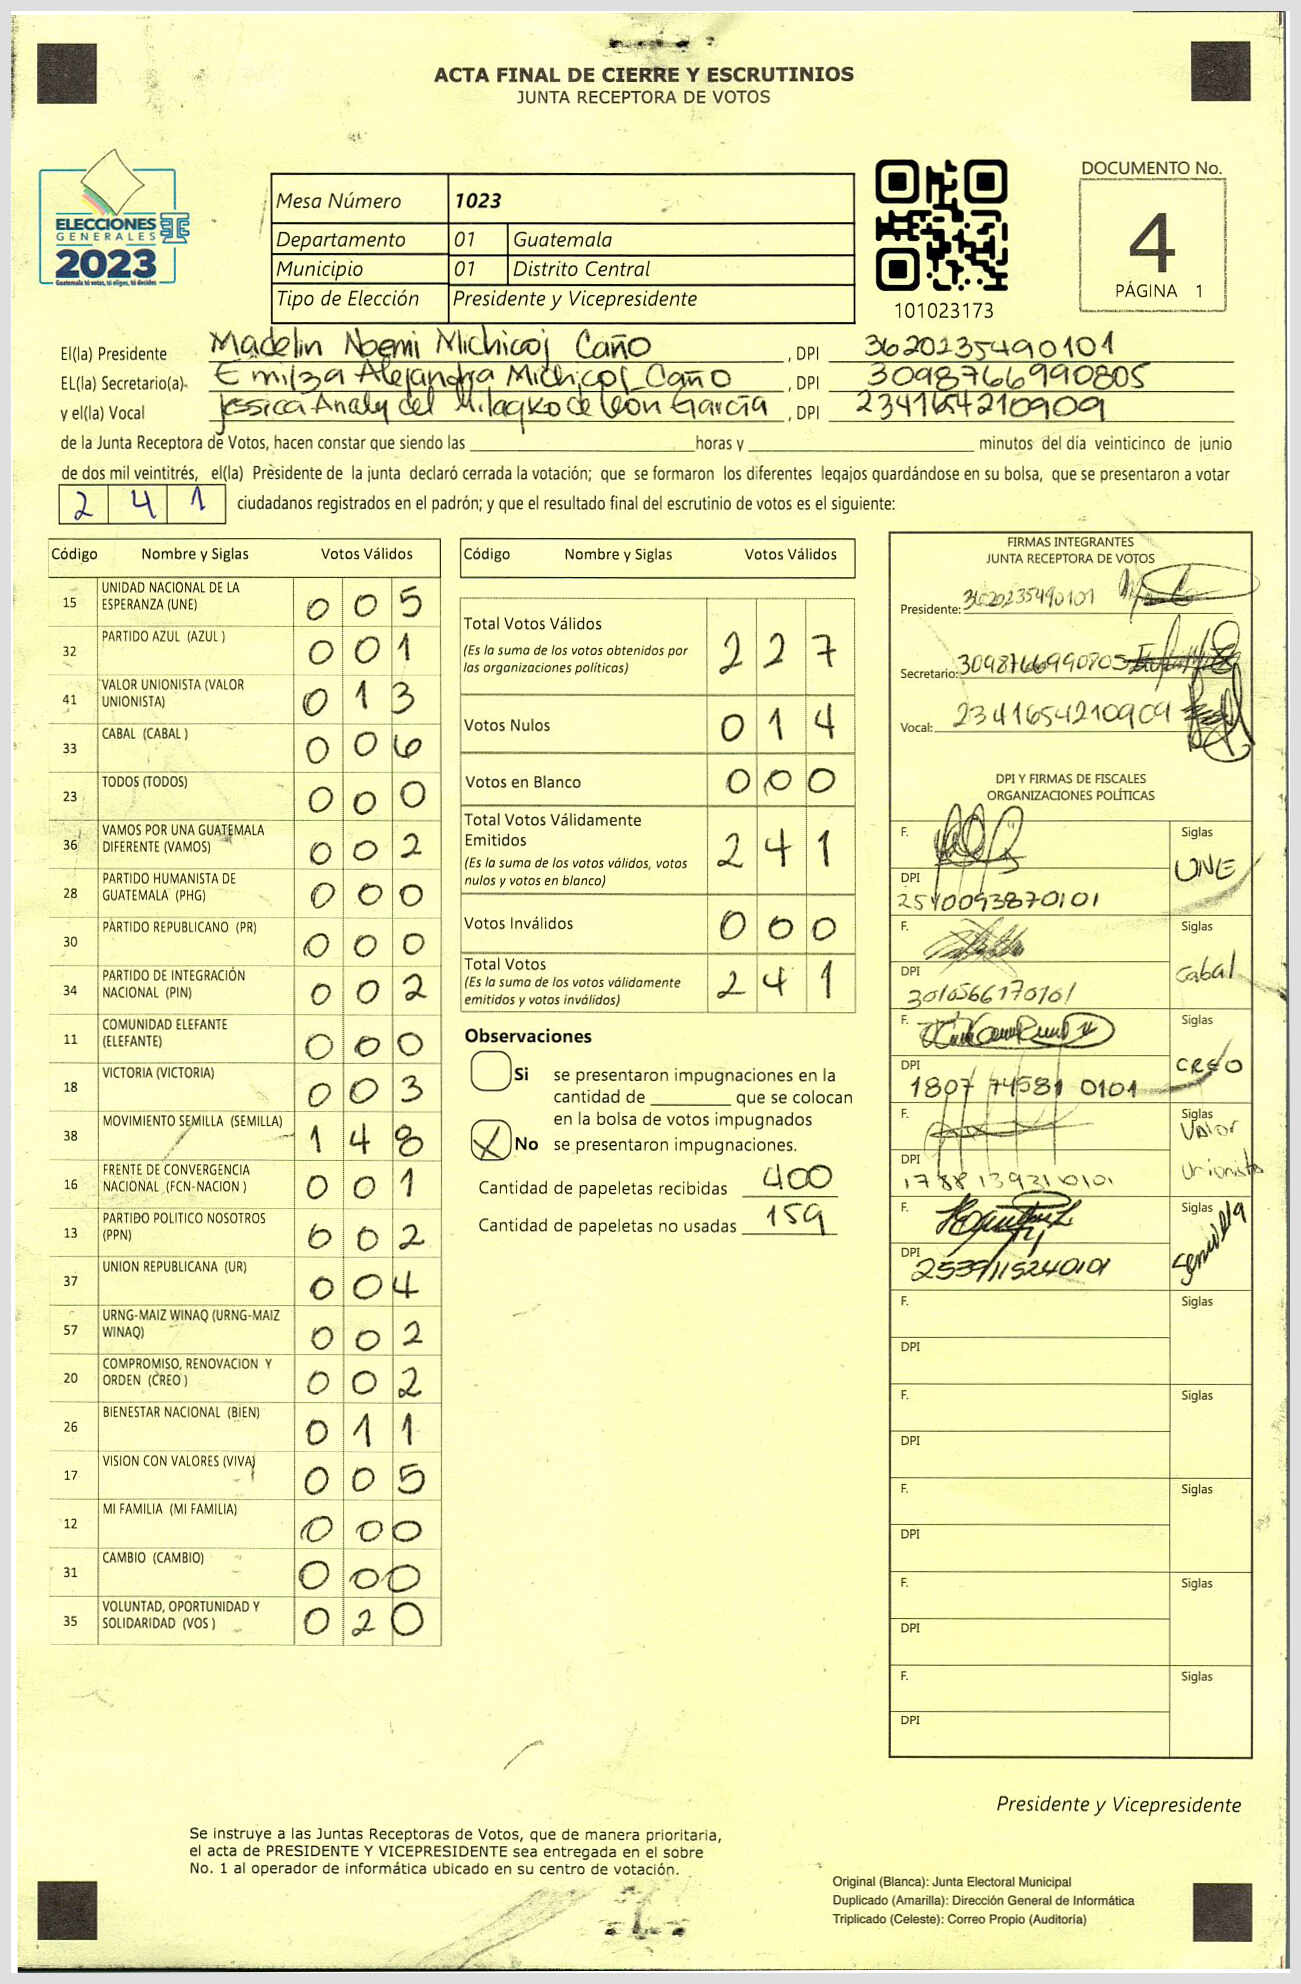 ACTA FINAL DE CIERRE Y ESCRUTINIOS
JUNTA RECEPTORA DE VOTOS
ELECCIONES
GENERALES
2023
Guatemala tú votas, tú eliges, tú decides
Mesa Número 1023
Departamento 01 Guatemala
Municipio 01 Distrito Central
Tipo de Elección Presidente y Vicepresidente
101023173
DOCUMENTO No.
4
PÁGINA 1
El(la) Presidente Madelin Noemi Michicoj Caño , DPI 3620235490101
EL(la) Secretario(a) Emilza Alejandra Michicoj Caño , DPI 3098766990805
y el(la) Vocal Jessica Analy del Milagro de León García , DPI 2341654210909
de la Junta Receptora de Votos, hacen constar que siendo las horas y minutos del día veinticinco de junio
de dos mil veintitrés, el(la) Presidente de la junta declaró cerrada la votación; que se formaron los diferentes legajos guardándose en su bolsa, que se presentaron a votar
2 4 1 ciudadanos registrados en el padrón; y que el resultado final del escrutinio de votos es el siguiente:
Código Nombre y Siglas Votos Válidos
15 UNIDAD NACIONAL DE LA
ESPERANZA (UNE) 0 0 5
32 PARTIDO AZUL (AZUL ) 0 0 1
41 VALOR UNIONISTA (VALOR
UNIONISTA) 0 1 3
33 CABAL (CABAL ) 0 0 6
23 TODOS (TODOS) 0 0 0
36 VAMOS POR UNA GUATEMALA
DIFERENTE (VAMOS) 0 0 2
28 PARTIDO HUMANISTA DE
GUATEMALA (PHG) 0 0 0
30 PARTIDO REPUBLICANO (PR) 0 0 0
34 PARTIDO DE INTEGRACIÓN
NACIONAL (PIN) 0 0 2
11 COMUNIDAD ELEFANTE
(ELEFANTE) 0 0 0
18 VICTORIA (VICTORIA) 0 0 3
38 MOVIMIENTO SEMILLA (SEMILLA) 1 4 8
16 FRENTE DE CONVERGENCIA
NACIONAL (FCN-NACION ) 0 0 1
13 PARTIDO POLITICO NOSOTROS
(PPN) 0 0 2
37 UNION REPUBLICANA (UR) 0 0 4
57 URNG-MAIZ WINAQ (URNG-MAIZ
WINAQ) 0 0 2
20 COMPROMISO, RENOVACION Y
ORDEN (CREO ) 0 0 2
26 BIENESTAR NACIONAL (BIEN) 0 1 1
17 VISION CON VALORES (VIVA) 0 0 5
12 MI FAMILIA (MI FAMILIA) 0 0 0
31 CAMBIO (CAMBIO) 0 0 0
35 VOLUNTAD, OPORTUNIDAD Y
SOLIDARIDAD (VOS ) 0 2 0
Código Nombre y Siglas Votos Válidos
Total Votos Válidos
(Es la suma de los votos obtenidos por
las organizaciones políticas) 2 2 7
Votos Nulos 0 1 4
Votos en Blanco 0 0 0
Total Votos Válidamente
Emitidos
(Es la suma de los votos válidos, votos
nulos y votos en blanco) 2 4 1
Votos Inválidos 0 0 0
Total Votos
(Es la suma de los votos válidamente
emitidos y votos inválidos) 2 4 1
Observaciones
Si se presentaron impugnaciones en la
cantidad de que se colocan
en la bolsa de votos impugnados
X No se presentaron impugnaciones.
Cantidad de papeletas recibidas 400
Cantidad de papeletas no usadas 159
FIRMAS INTEGRANTES
JUNTA RECEPTORA DE VOTOS
Presidente: 3620235490101
Secretario: 3098766990805
Vocal: 2341654210909
DPI Y FIRMAS DE FISCALES
ORGANIZACIONES POLÍTICAS
F. Siglas
UNE
DPI
F. Siglas
Cabal
DPI
3010566170101
F. Siglas
CREO
DPI
1807 74581 0101
F. Siglas
Valor
Unionista
DPI
F. Siglas
Semilla
DPI
F. Siglas
DPI
F. Siglas
DPI
F. Siglas
DPI
F. Siglas
DPI
F. Siglas
DPI
Presidente y Vicepresidente
Se instruye a las Juntas Receptoras de Votos, que de manera prioritaria,
el acta de PRESIDENTE Y VICEPRESIDENTE sea entregada en el sobre
No. 1 al operador de informática ubicado en su centro de votación.
Original (Blanca): Junta Electoral Municipal
Duplicado (Amarilla): Dirección General de Informática
Triplicado (Celeste): Correo Propio (Auditoría)